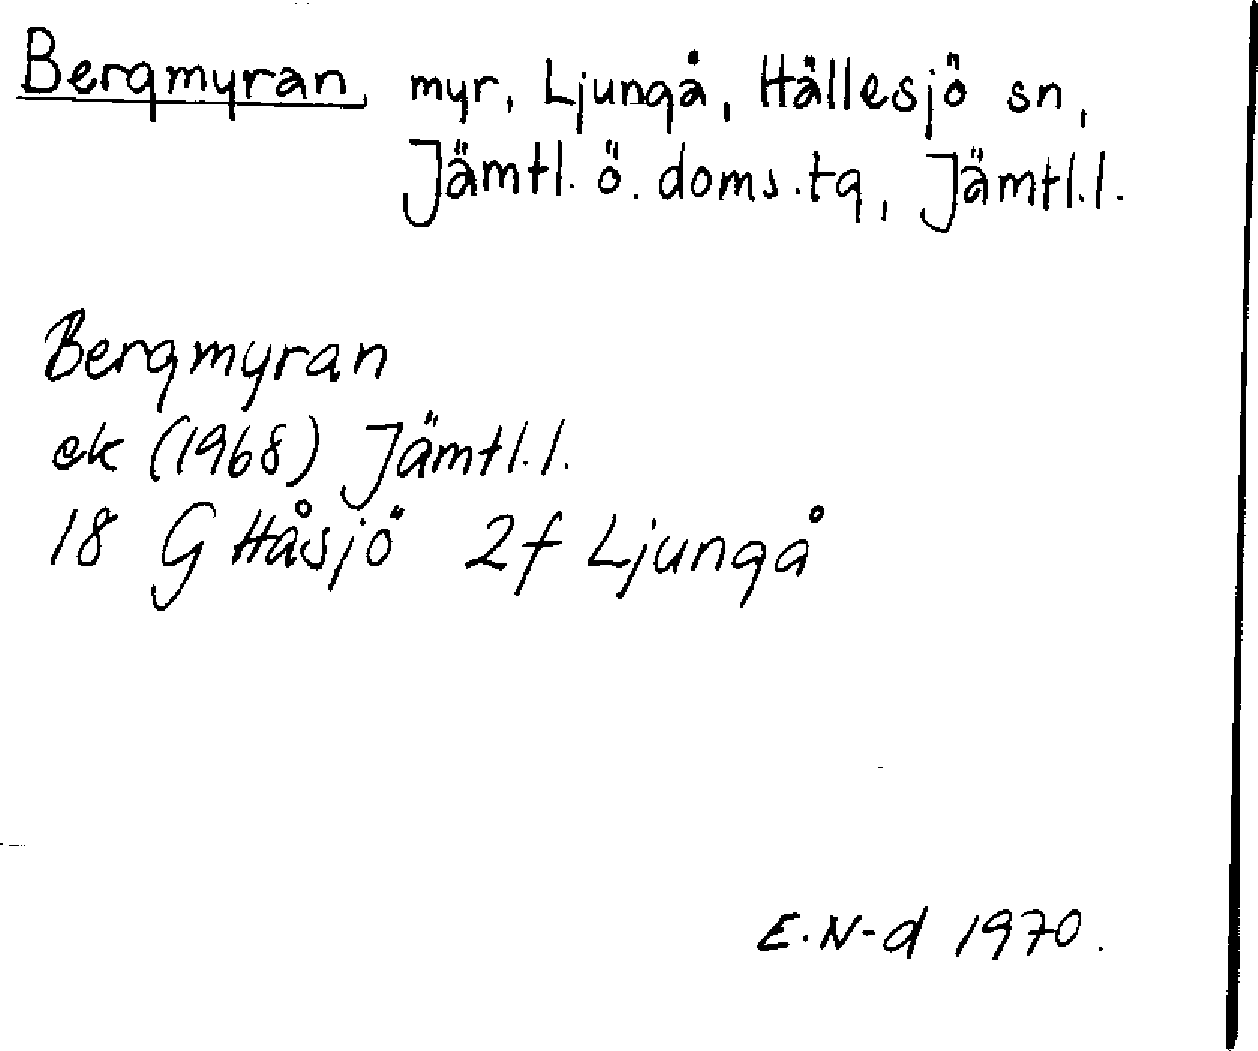 Bergmyran, myr, Ljungå, Hällesjö sn,
Jämtl. ö. doms.tg, Jämtl.l.
Bergmyran
ek (1968) Jämtl.l.
18 G Håsjö 2f Ljungå
E.N-d 1970.